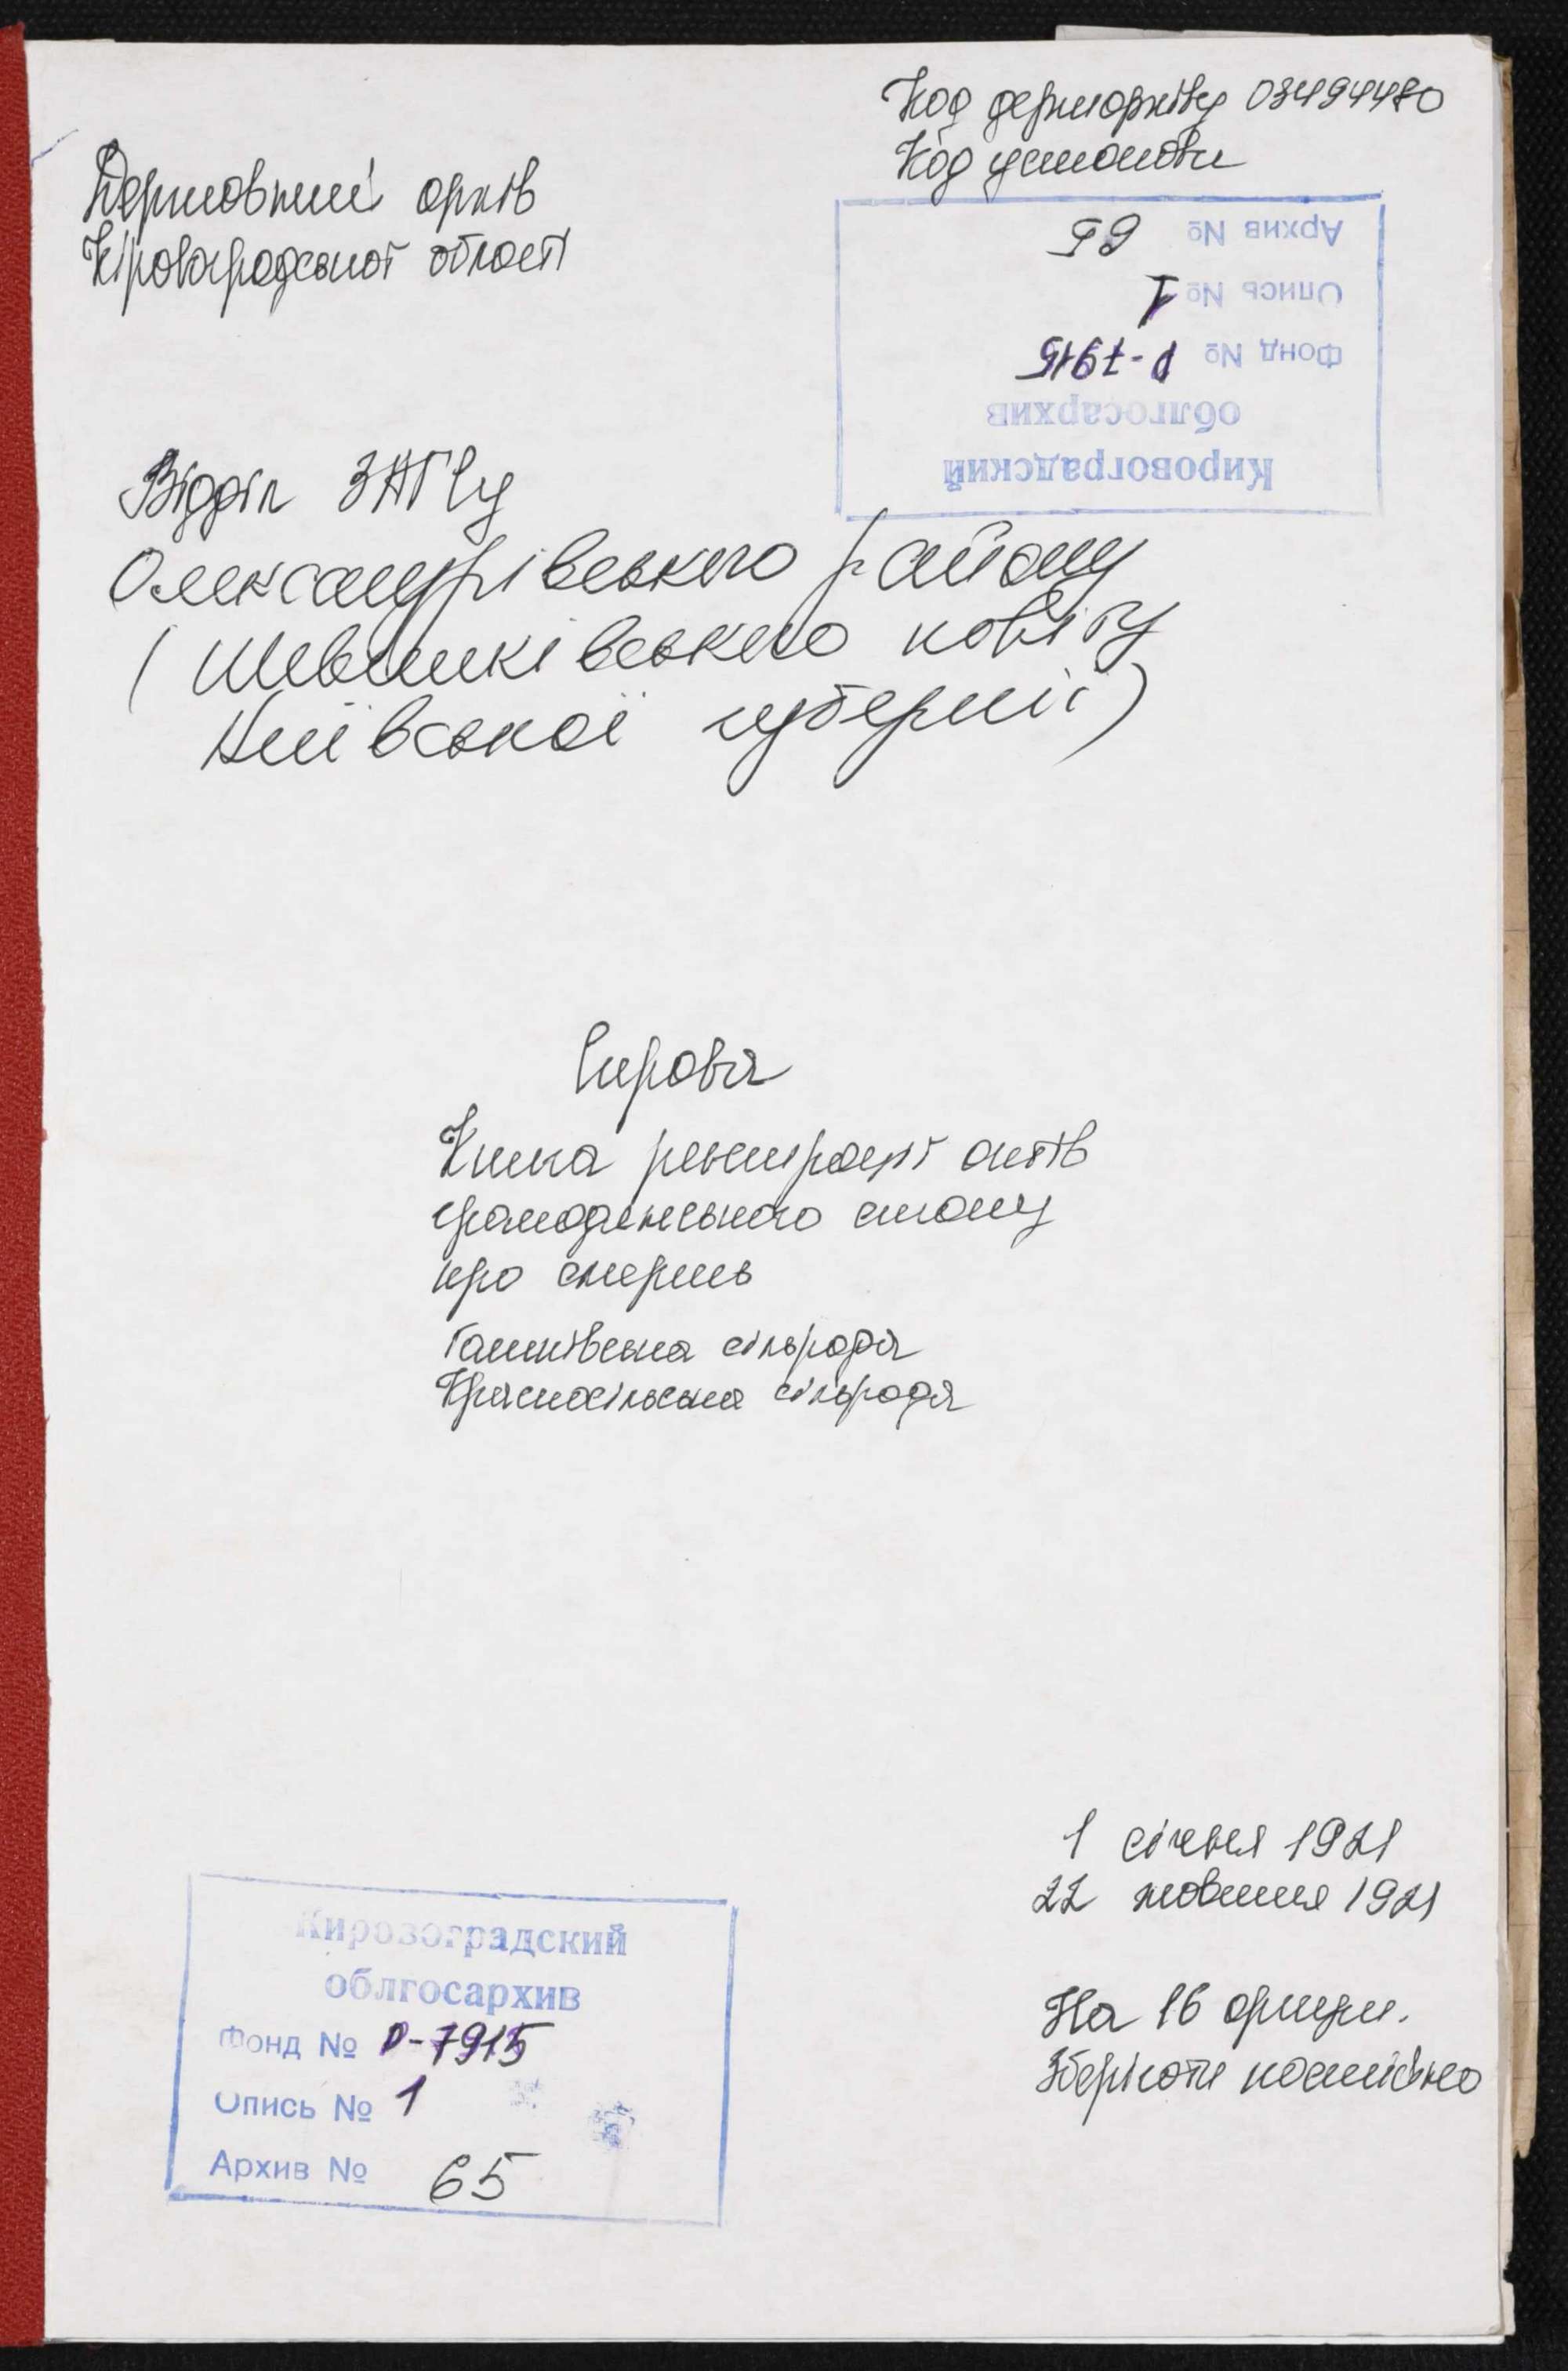 Код держархіву 03494480
Код установи
Державний архів
Кіровоградської області
Архив № 65
Опись № 1
Фонд № Р-7915
облгосархив
Кировоградский
Відділ ЗАГСу
Олександрівського району
(Шевченківського повіту
Київської губернії)
Справа
Книга реєстрації актів
громадянського стану
про смерть
Ганнівська сільрада
Красносільська сільрада
1 січня 1921
22 жовтня 1921
На 16 аркуш.
Зберігати постійно
Кировоградский
облгосархив
Фонд № Р-7915
Опись № 1
Архив № 65